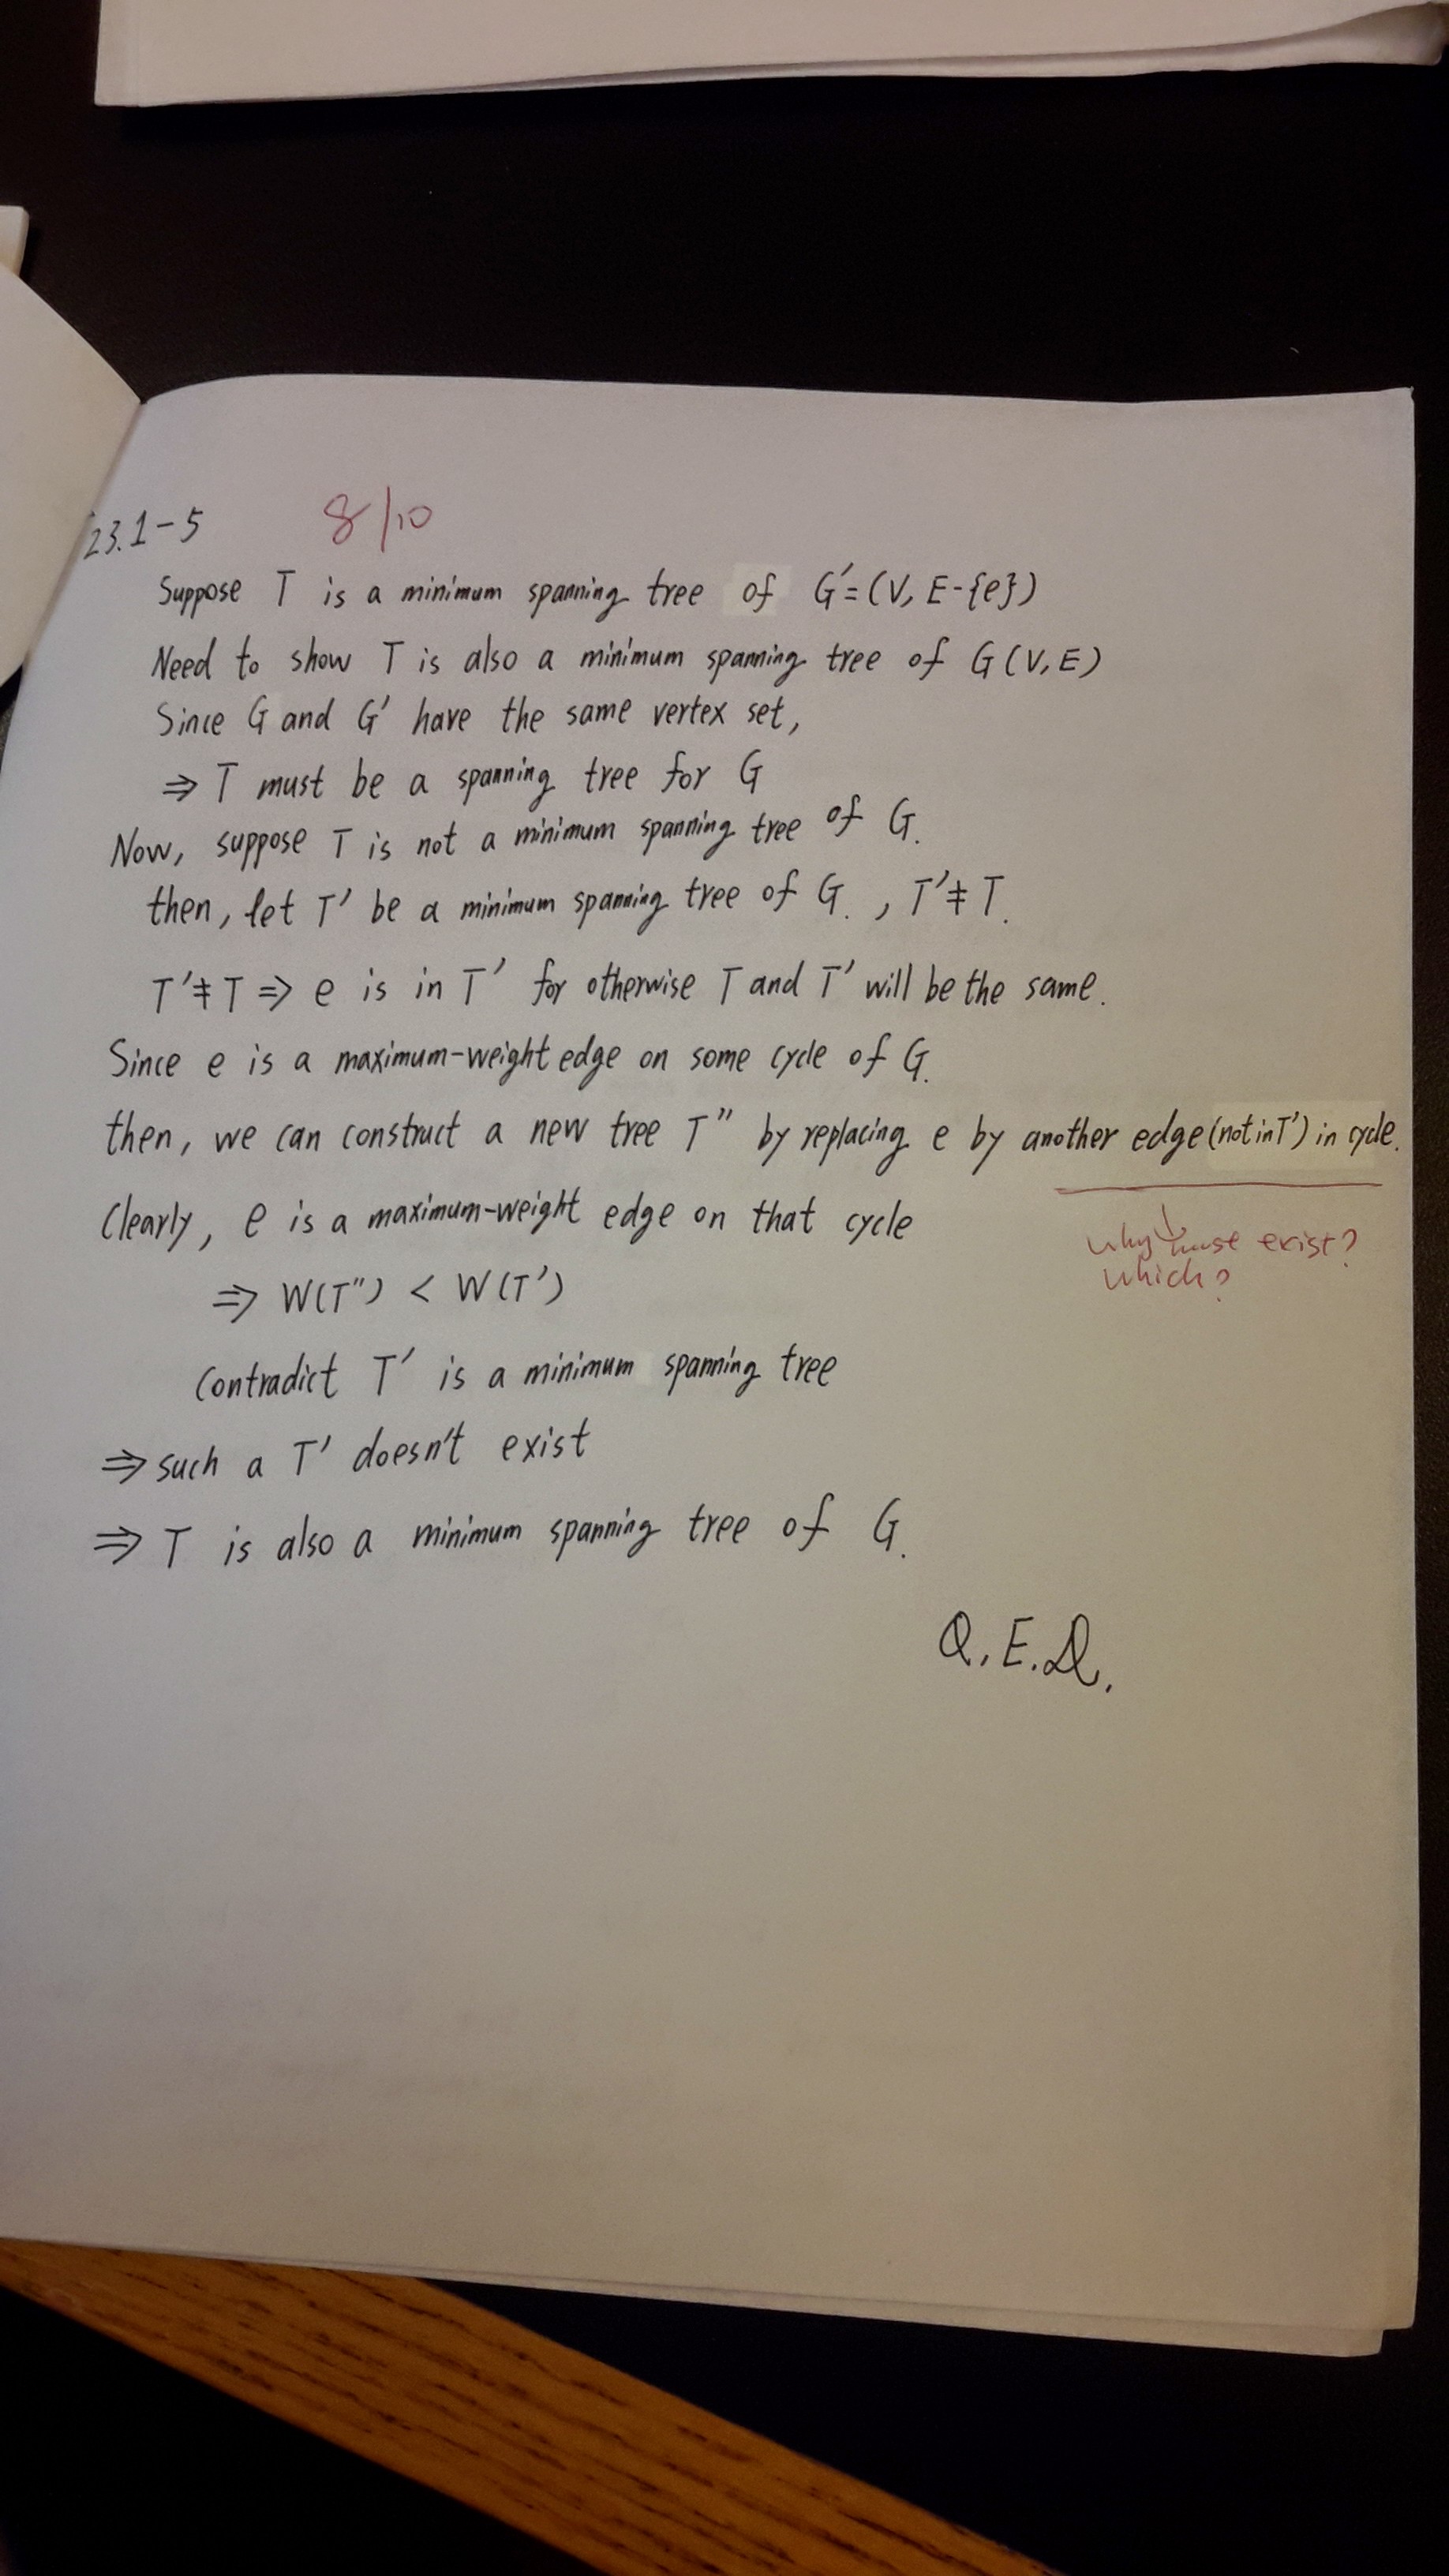 23.1-5 8/10
Suppose T is a minimum spanning tree of G'=(V, E-{e})
Need to show T is also a minimum spanning tree of G(V,E)
Since G and G' have the same vertex set,
⇒ T must be a spanning tree for G
Now, suppose T is not a minimum spanning tree of G.
then, let T' be a minimum spanning tree of G. , T'≠T.
T'≠T ⇒ e is in T' for otherwise T and T' will be the same.
Since e is a maximum-weight edge on some cycle of G.
then, we can construct a new tree T" by replacing e by another edge (not in T') in cycle.
Clearly, e is a maximum-weight edge on that cycle
why must exist?
which?
⇒ W(T") < W(T')
Contradict T' is a minimum spanning tree
⇒ such a T' doesn't exist
⇒ T is also a minimum spanning tree of G.
Q.E.D.